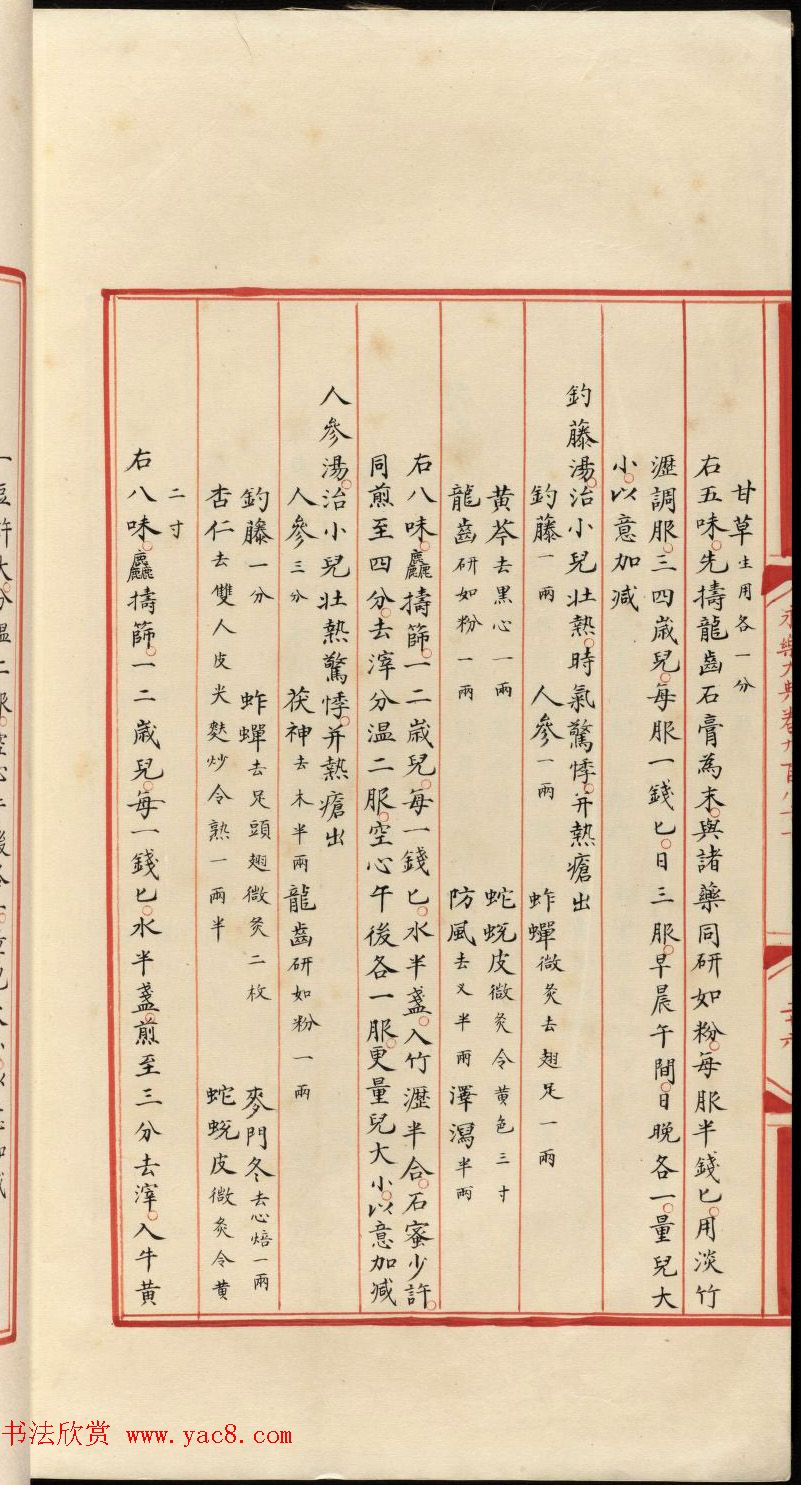 永樂大典卷九百八十一
二十六
甘草生用各一分
右五味先擣龍齒石膏為末與諸藥同研如粉每服半錢匕用淡竹
瀝調服三四歲兒每服一錢匕日三服早晨午間日晚各一量兒大
小以意加減
釣藤湯治小兒壯熱時氣驚悸并熱瘡出
釣藤一兩 人參一兩 蚱蟬微炙去翅足一兩
黃芩去黑心一兩 蛇蛻皮微炙令黃色三寸
龍齒研如粉一兩 防風去叉半兩 澤瀉半兩
右八味麤擣篩一二歲兒每一錢匕水半盞入竹瀝半合石蜜少許
同煎至四分去滓分溫二服空心午後各一服更量兒大小以意加減
人參湯治小兒壯熱驚悸并熱瘡出
人參三分 茯神去木半兩 龍齒研如粉一兩
釣藤一分 蚱蟬去足頭翅微炙二枚 麥門冬去心焙一兩
杏仁去雙人皮尖麩炒令熟一兩半 蛇蛻皮微炙令黃
二寸
右八味麤擣篩一二歲兒每一錢匕水半盞煎至三分去滓入牛黃
书法欣赏 www.yac8.com